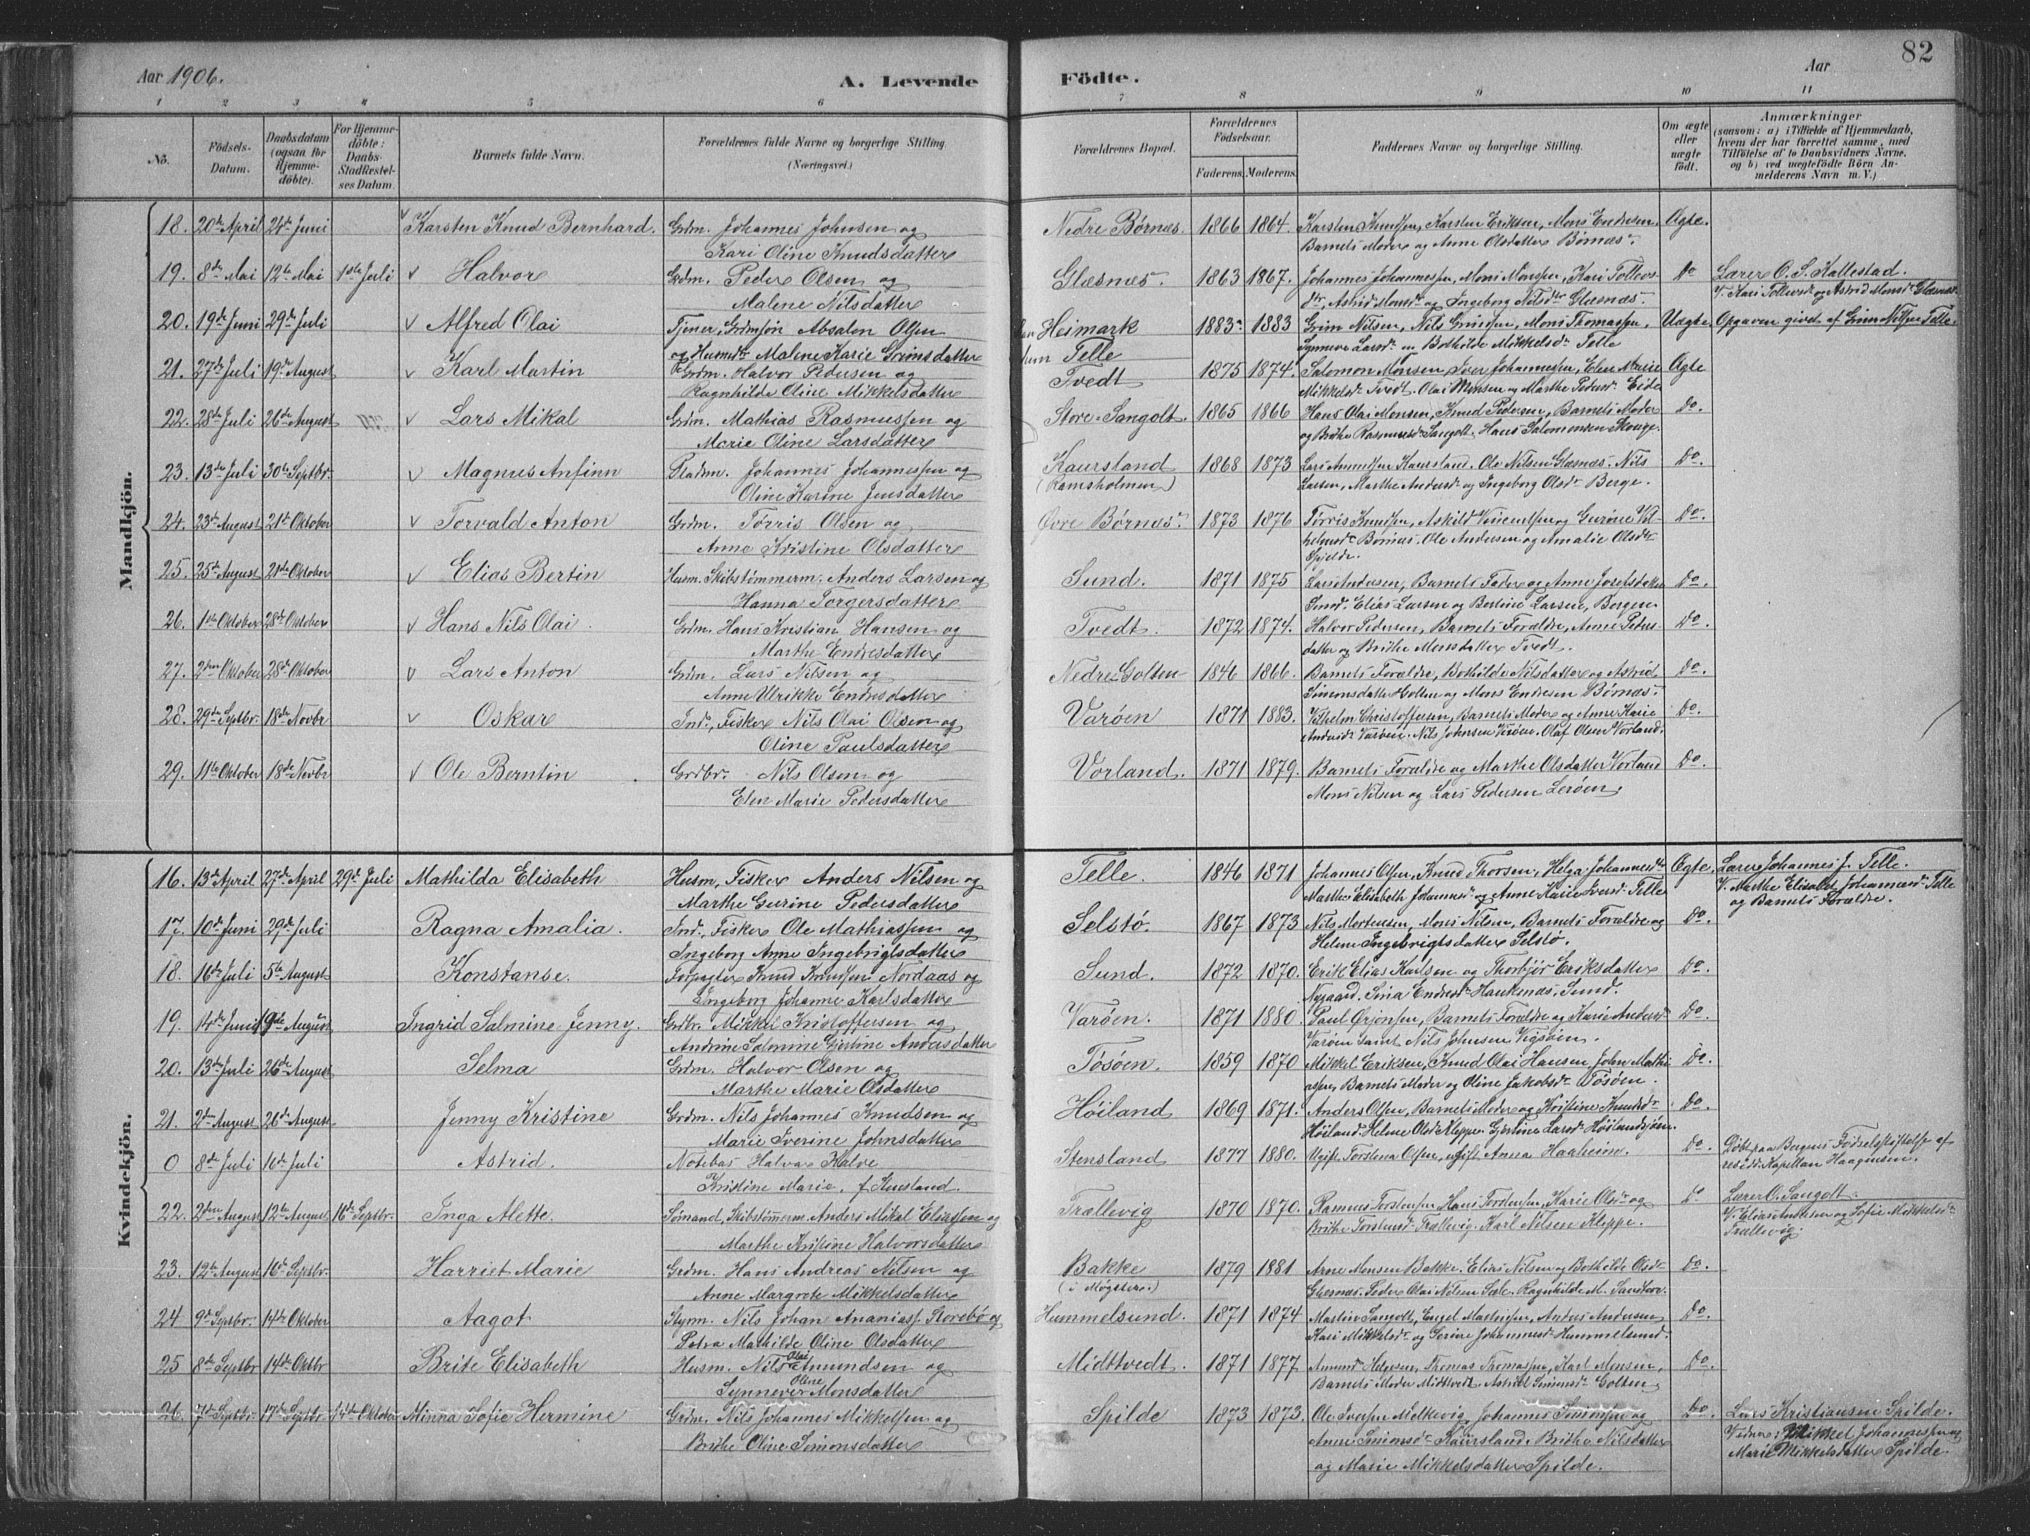 Aar 1906.
A. Levende
Födte.
Aar
82
1 2 3 4 5 6 7 8 9 10 11
No.
Födsels-Datum.
Daabsdatum (ogsaa for Hjemmedöbte).
For Hjemmedöbte: Daabs-Stadfæstelses Datum.
Barnets fulde Navn.
Forældrenes fulde Navne og borgerlige Stilling. (Næringsvei.)
Forældrenes Bopæl.
Forældrenes Födselsaar.
Faderens. Moderens.
Faddernes Navne og borgerlige Stilling.
Om ægte eller uægte födt.
Anmærkninger (saasom: a) i Tilfælde af Hjemmedaab, hvem der har forrettet samme, med Tilföielse af to Daabsvidners Navne, og b) ved uegtefödte Börn Anmelderens Navn m. V.)
Mandkjön.
18. 20de April 24de Juni Karsten Knud Bernhard. Grdm. Johannes Johnsen og Nedre Børnæs. 1866 1864. Karsten Knudsen, Karsten Eriksen, Mons Endresen Ægte.
Kari Oline Knudsdatter Barnets Moder og Anne Olsdatter Børnæs.
19. 8de Mai 12te Mai 1ste Juli Halvor Grdm. Peder Olsen og Glæsnæs. 1863 1867. Johannes Johannessen, Mons Monsen, Kari Tollevs- Do Lærer O. S. Kallestad.
Malene Nilsdatter dtr, Astrid Monsdr og Ingeborg Nilsdtr Glæsnæs. V. Kari Tollevsdr og Astrid Monsdr Glæsnæs.
20. 19de Juni 29de Juli Alfred Olai Tjener, Grdmsøn Absalon Olsen Heimark 1883 1883 Grim Nilsen, Nils Grimsen, Mons Thomassen, Uægte Opgaven givet af Grim Nilsen Telle.
og Husmdr Malene Karie Grimsdatter Telle Synneve Larsdr Bothilde Mikkelsdr Telle
21. 27de Juli 19de August Karl Martin Grdm. Halvor Pedersen og Tvedt 1875 1874. Salomon Monsen, Iver Johannessen, Elen Marie Ægte
Ragnhilda Oline Mikkelsdatter Mikkelsdr Tvedt. Olai Monsen og Marthe Pedersdr Eide
22. 28de Juli 26de August Lars Mikal Grdm. Mathias Rasmussen og Store-Sangolt. 1865 1866 Hans Olai Monsen, Knud Pedersen, Barnets Moder Do.
Marie Oline Larsdatter og Brithe Rasmusdr Sangolt. Hans Salomonsen Skoge.
23. 13de Juli 30te Septbr. Magnus Anfinn Pladsm. Johannes Johannessen og Kaursland 1868 1873 Lars Amundsen Kaursland. Ole Nilsen Glæsnæs. Nils Do.
Oline Karine Jensdatter (Ramsholmen) Larsen, Marthe Andersdr og Ingeborg Olsdr Berge.
24. 23de August 21de Oktober Torvald Anton Grdm. Tørris Olsen og Øvre Børnæs. 1873 1876 Tørris Knudsen, Askild Vincentsen og Gurine Vil- Do.
Anne Kristine Olsdatter helmsdr Børnæs. Ole Andersen og Amalie Olsdtr Spjelde.
25. 25de August 21de Oktober Elias Bertin Husm. Skibstømmerm. Anders Larsen og Sund. 1871 1875 Lars Andersen, Barnets Fader og Anne Josefsdatter Do.
Hanna Torgersdatter Sund. Elias Larsen og Bertine Larsen, Bergen
26. 1ste Oktober 28de Oktober Hans Nils Olai. Grdm. Hans Kristian Hansen og Tvedt. 1872 1874. Halvor Pedersen, Barnets Forældre, Anne Peders- Do.
Marthe Endresdatter datter og Brithe Monsdatter Tvedt.
27. 2den Oktober 28de Oktober Lars Anton Grdm. Lars Nilsen og Nedre Golten 1846 1866. Barnets Forældre, Bothilde Nilsdatter og Astrid Do.
Anne Ulrikke Endresdatter Simonsdatter Golten og Mons Endresen Børnæs.
28. 29de Septbr. 18de Novbr Oskar Ind., Fisker Nils Olai Olsen og Varøen 1871 1883. Vilhelm Christoffersen, Barnets Moder og Anne Karie Do.
Oline Paulsdatter Andersdr Varøen. Nils Johnsen Varøen. Olaf Olsen Vorland.
29. 11te Oktober 18de Novbr Ole Berntin Grdbr. Nils Olsen og Vorland. 1871 1879. Barnets Forældre og Marthe Olsdatter Vorland Do.
Elen Marie Pedersdatter Mons Nilsen og Lars Pedersen Lerøen.
Kvindekjön.
16. 13de April 27de April 29de Juli Mathilda Elisabeth Husm, Fisker Anders Nilsen og Telle. 1846 1871 Johannes Olsen, Knud Thorsen, Helga Johannesdr Ægte. Lærer Johannes J. Telle.
Marthe Gurine Pedersdatter Marthe Elisabeth Johannesdr og Anne Karie Iversdr Telle V. Marthe Elisabet Johannesdr Telle og Barnets Forældre.
17. 10de Juni 29de Juli Ragna Amalia. Ind., Fisker Ole Mathiassen og Selstø. 1867 1873 Nils Mortensen, Mons Nilsen, Barnets Forældre og Do.
Ingeborg Anne Ingebrigtsdatter Helene Ingebrigtsdatter Selstø.
18. 16de Juli 5te August Konstanse. Forpagter Knud Knudsen Nordaas og Sund. 1872 1870. Erik Elias Karlsen og Thorbjør Eriksdatter Do.
Ingeborg Johanne Karlsdatter Nygaard. Sina Endresdr Haukenæs, Sund.
19. 14de Juni 9de August Ingrid Salmine Jenny. Grdbr. Mikkel Kristoffersen og Varøen. 1871 1880. Paul Ørjansen, Barnets Forældre og Karie Andersdr Do.
Andrine Salmine Gjertine Andersdatter Varøen samt Nils Johnsen Vigsøen.
20. 13de Juli 26de August Selma Grdm. Halvor Olsen og Tøsøen. 1859 1870 Mikkel Eriksen, Knud Olai Hansen, John Mathi- Do.
Marthe Marie Olsdatter assen, Barnets Moder og Oline Jakobsdr Tøsøen.
21. 2den August 26de August Jenny Kristine Grdm. Nils Johannes Knudsen og Høiland 1869 1871. Anders Olsen, Barnets Moder og Kristine Knudsdr Do.
Marie Iverine Johnsdatter Høiland. Helene Olsdr Kleppe. Gjertine Larsdr Høilandsjøen.
0 8de Juli 16de Juli Astrid. Notebas Halvar Kalve Stensland 1877 1880. Ugift Torstena Olsen, ugift Anna Haaheim. Do. Döbt paa Bergens Fødselsstiftelse af
Kristine Marie. f. Knesland. resid. Kapellan Haagensen.
22. 2den August 12te August 16de Septbr. Inga Alette. Sømand, Skibstømmerm. Anders Mikal Eliassen og Trællevig 1870 1870. Rasmus Torstensen, Hans Torstensen, Karie Olsdr og Do Lærer O. Sangolt.
Marthe Kristine Halvorsdatter Brithe Torstensdr Trællevig. Karl Nilsen Kleppe. V. Elias Andersen og Sofie Mikkelsdr Trællevig.
23. 12te August 16de Septbr. Harriet Marie Grdm. Hans Andreas Nilsen og Bakke 1879 1881 Arne Monsen Bakke. Elias Nilsen og Bothilde Olsdr Do.
Anne Margrete Mikkelsdatter (i Møgster.) Glesnæs. Peder Olai Nilsen Sæle. Ragnhilde M.
24 9de Septbr. 14de Oktober Aagot Styrm. Nils Johan Ananiass. Storebø og Hummelsund. 1871 1874 Martin Sangolt, Engel Mathisen, Anders Andersen Do.
Petra Mathilde Oline Olsdatter Kari Mikkelsdr og Serine Johannesdr Hummelsund.
25 8de Septbr 14de Octbr Brite Elisabeth Husm. Nils Olai Amundsen og Midttvedt. 1871 1877 Amund Helgesen, Thomas Thomassen, Karl Monsen, Do.
Synnever Oline Monsdatter Barnets Moder Midttvedt. Astrid Simonsdr Golten
26. 7de Septbr. 17de Septbr. 14de Oktober Minna Sofie Hermine Grdm. Nils Johannes Mikkelsen og Spilde 1873 1873. Ole Iversen Melkevig, Johannes Simonsen og Do. Lars Kristiansen Spilde.
Brithe Oline Simonsdatter Anne Simonsdr Kaursland. Brithe Nilsdatter Vidner: Mikkel Johannessen og
og Marie Mikkelsdatter Spilde. Marie Mikkelsdatter Spilde.